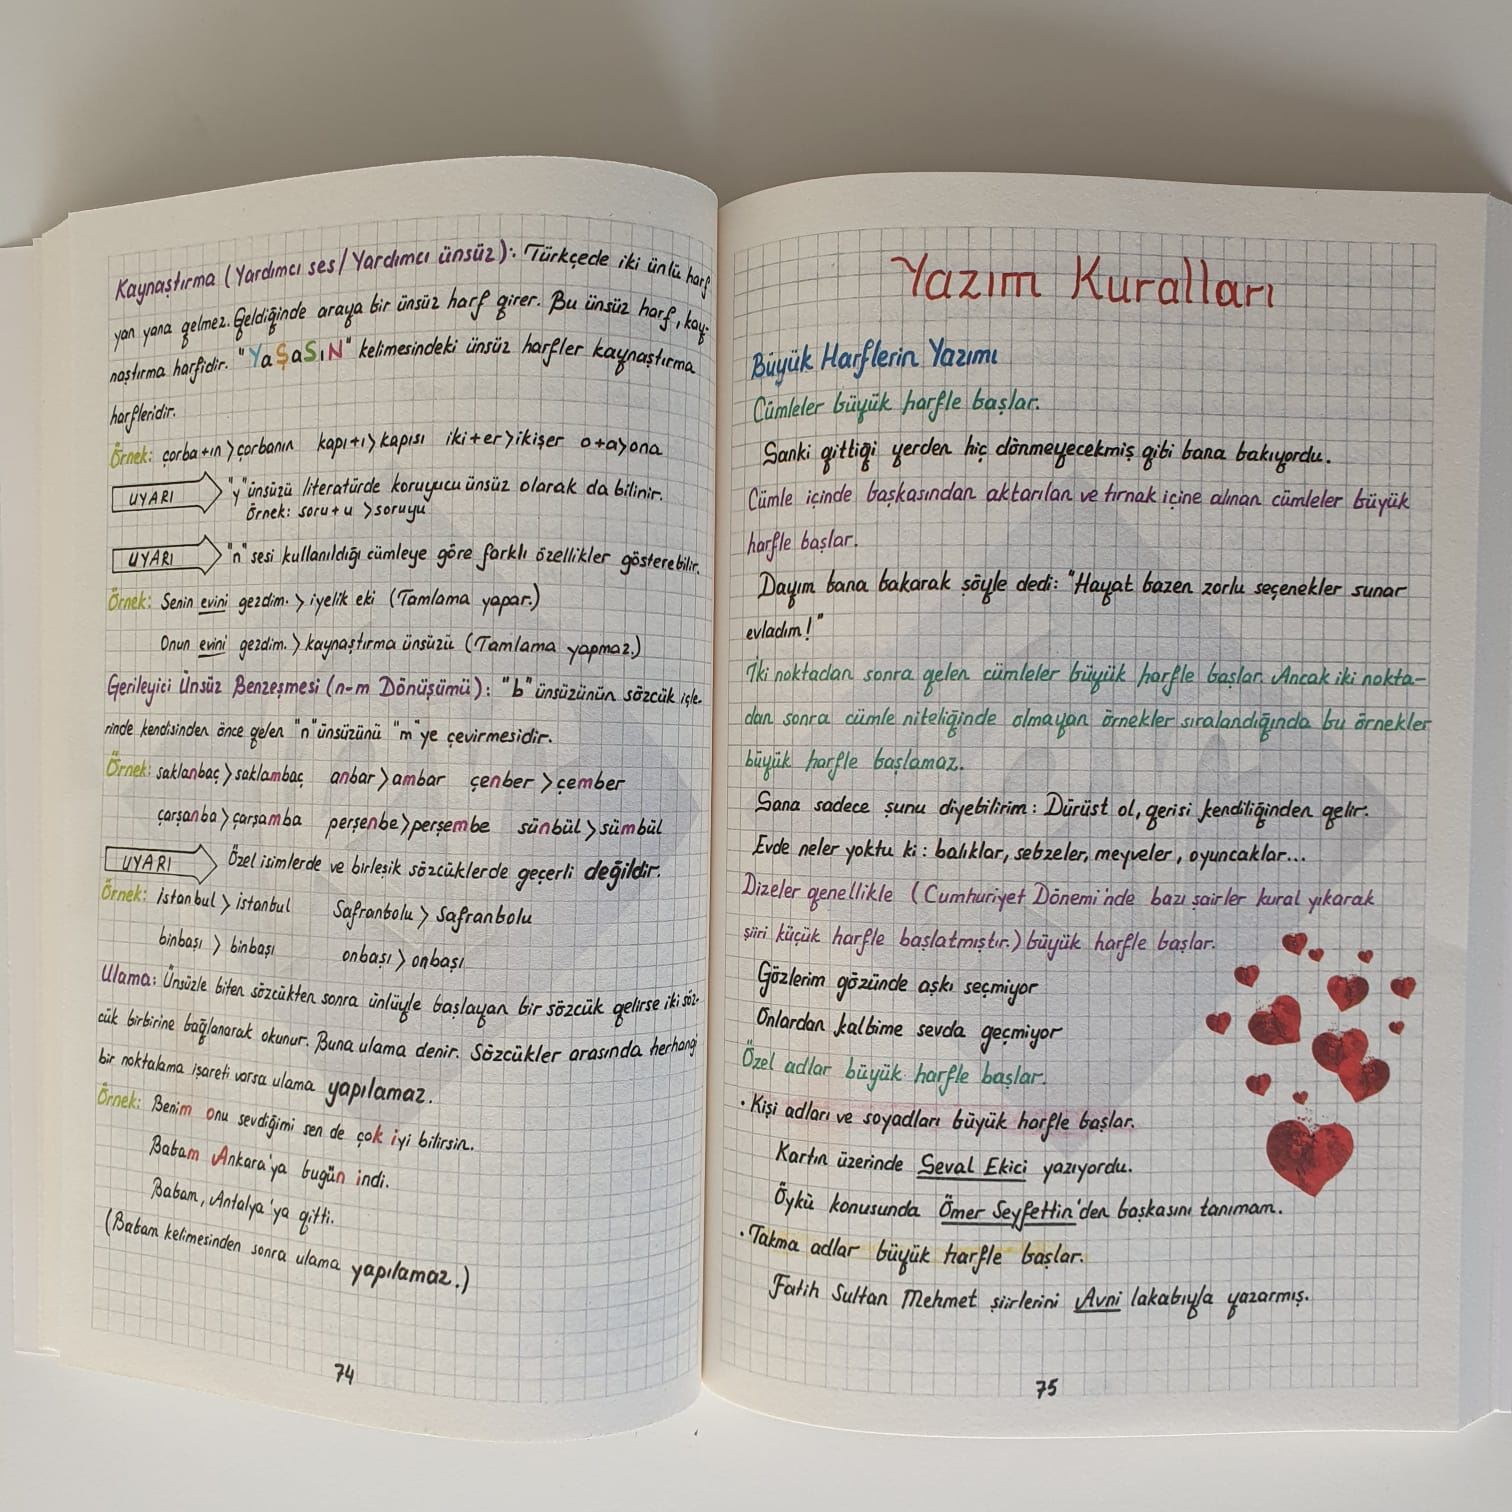 Kaynaştırma (Yardımcı ses/Yardımcı ünsüz): Türkçede iki ünlü harf
yan yana gelmez. Geldiğinde araya bir ünsüz harf girer. Bu ünsüz harf, kay-
naştırma harfidir. "YaŞaSıN" kelimesindeki ünsüz harfler kaynaştırma
harfleridir.
Örnek: çorba+ın>çorbanın kapı+ı>kapısı iki+er>ikişer o+a>ona
UYARI "y" ünsüzü literatürde koruyucu ünsüz olarak da bilinir.
Örnek: soru+u >soruyu
UYARI "n" sesi kullanıldığı cümleye göre farklı özellikler gösterebilir.
Örnek: Senin evini gezdim. > iyelik eki (Tamlama yapar.)
Onun evini gezdim. > kaynaştırma ünsüzü (Tamlama yapmaz.)
Gerileyici Ünsüz Benzeşmesi (n-m Dönüşümü): "b" ünsüzünün sözcük içle-
rinde kendisinden önce gelen "n" ünsüzünü "m" ye çevirmesidir.
Örnek: saklanbaç > saklambaç anbar > ambar çenber > çember
çarşanba > çarşamba perşenbe > perşembe sünbül > sümbül
UYARI Özel isimlerde ve birleşik sözcüklerde geçerli değildir.
Örnek: İstanbul > istanbul Safranbolu > Safranbolu
binbaşı > binbaşı onbaşı > onbaşı
Ulama: Ünsüzle biten sözcükten sonra ünlüyle başlayan bir sözcük gelirse iki söz-
cük birbirine bağlanarak okunur. Buna ulama denir. Sözcükler arasında herhangi
bir noktalama işareti varsa ulama yapılamaz.
Örnek: Benim onu sevdiğimi sen de çok iyi bilirsin.
Babam Ankara'ya bugün indi.
Babam, Antalya'ya gitti.
(Babam kelimesinden sonra ulama yapılamaz.)
74
Yazım Kuralları
Büyük Harflerin Yazımı
Cümleler büyük harfle başlar.
Sanki gittiği yerden hiç dönmeyecekmiş gibi bana bakıyordu.
Cümle içinde başkasından aktarılan ve tırnak içine alınan cümleler büyük
harfle başlar.
Dayım bana bakarak şöyle dedi: "Hayat bazen zorlu seçenekler sunar
evladım!"
İki noktadan sonra gelen cümleler büyük harfle başlar. Ancak iki nokta-
dan sonra cümle niteliğinde olmayan örnekler sıralandığında bu örnekler
büyük harfle başlamaz.
Sana sadece şunu diyebilirim: Dürüst ol, gerisi kendiliğinden gelir.
Evde neler yoktu ki: balıklar, sebzeler, meyveler, oyuncaklar...
Dizeler genellikle (Cumhuriyet Dönemi'nde bazı şairler kural yıkarak
şiiri küçük harfle başlatmıştır.) büyük harfle başlar.
Gözlerim gözünde aşkı seçmiyor
Onlardan kalbime sevda geçmiyor
Özel adlar büyük harfle başlar.
• Kişi adları ve soyadları büyük harfle başlar.
Kartın üzerinde Seval Ekici yazıyordu.
Öykü konusunda Ömer Seyfettin'den başkasını tanımam.
• Takma adlar büyük harfle başlar.
Fatih Sultan Mehmet şiirlerini Avni lakabıyla yazarmış.
75